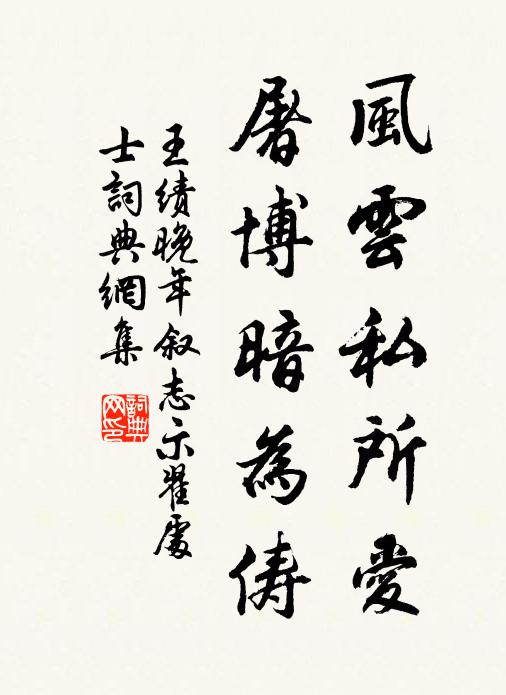 風雲私所愛
屠博暗為儔
王績晚年叙志示翟處
士詞典網集
詞典网印